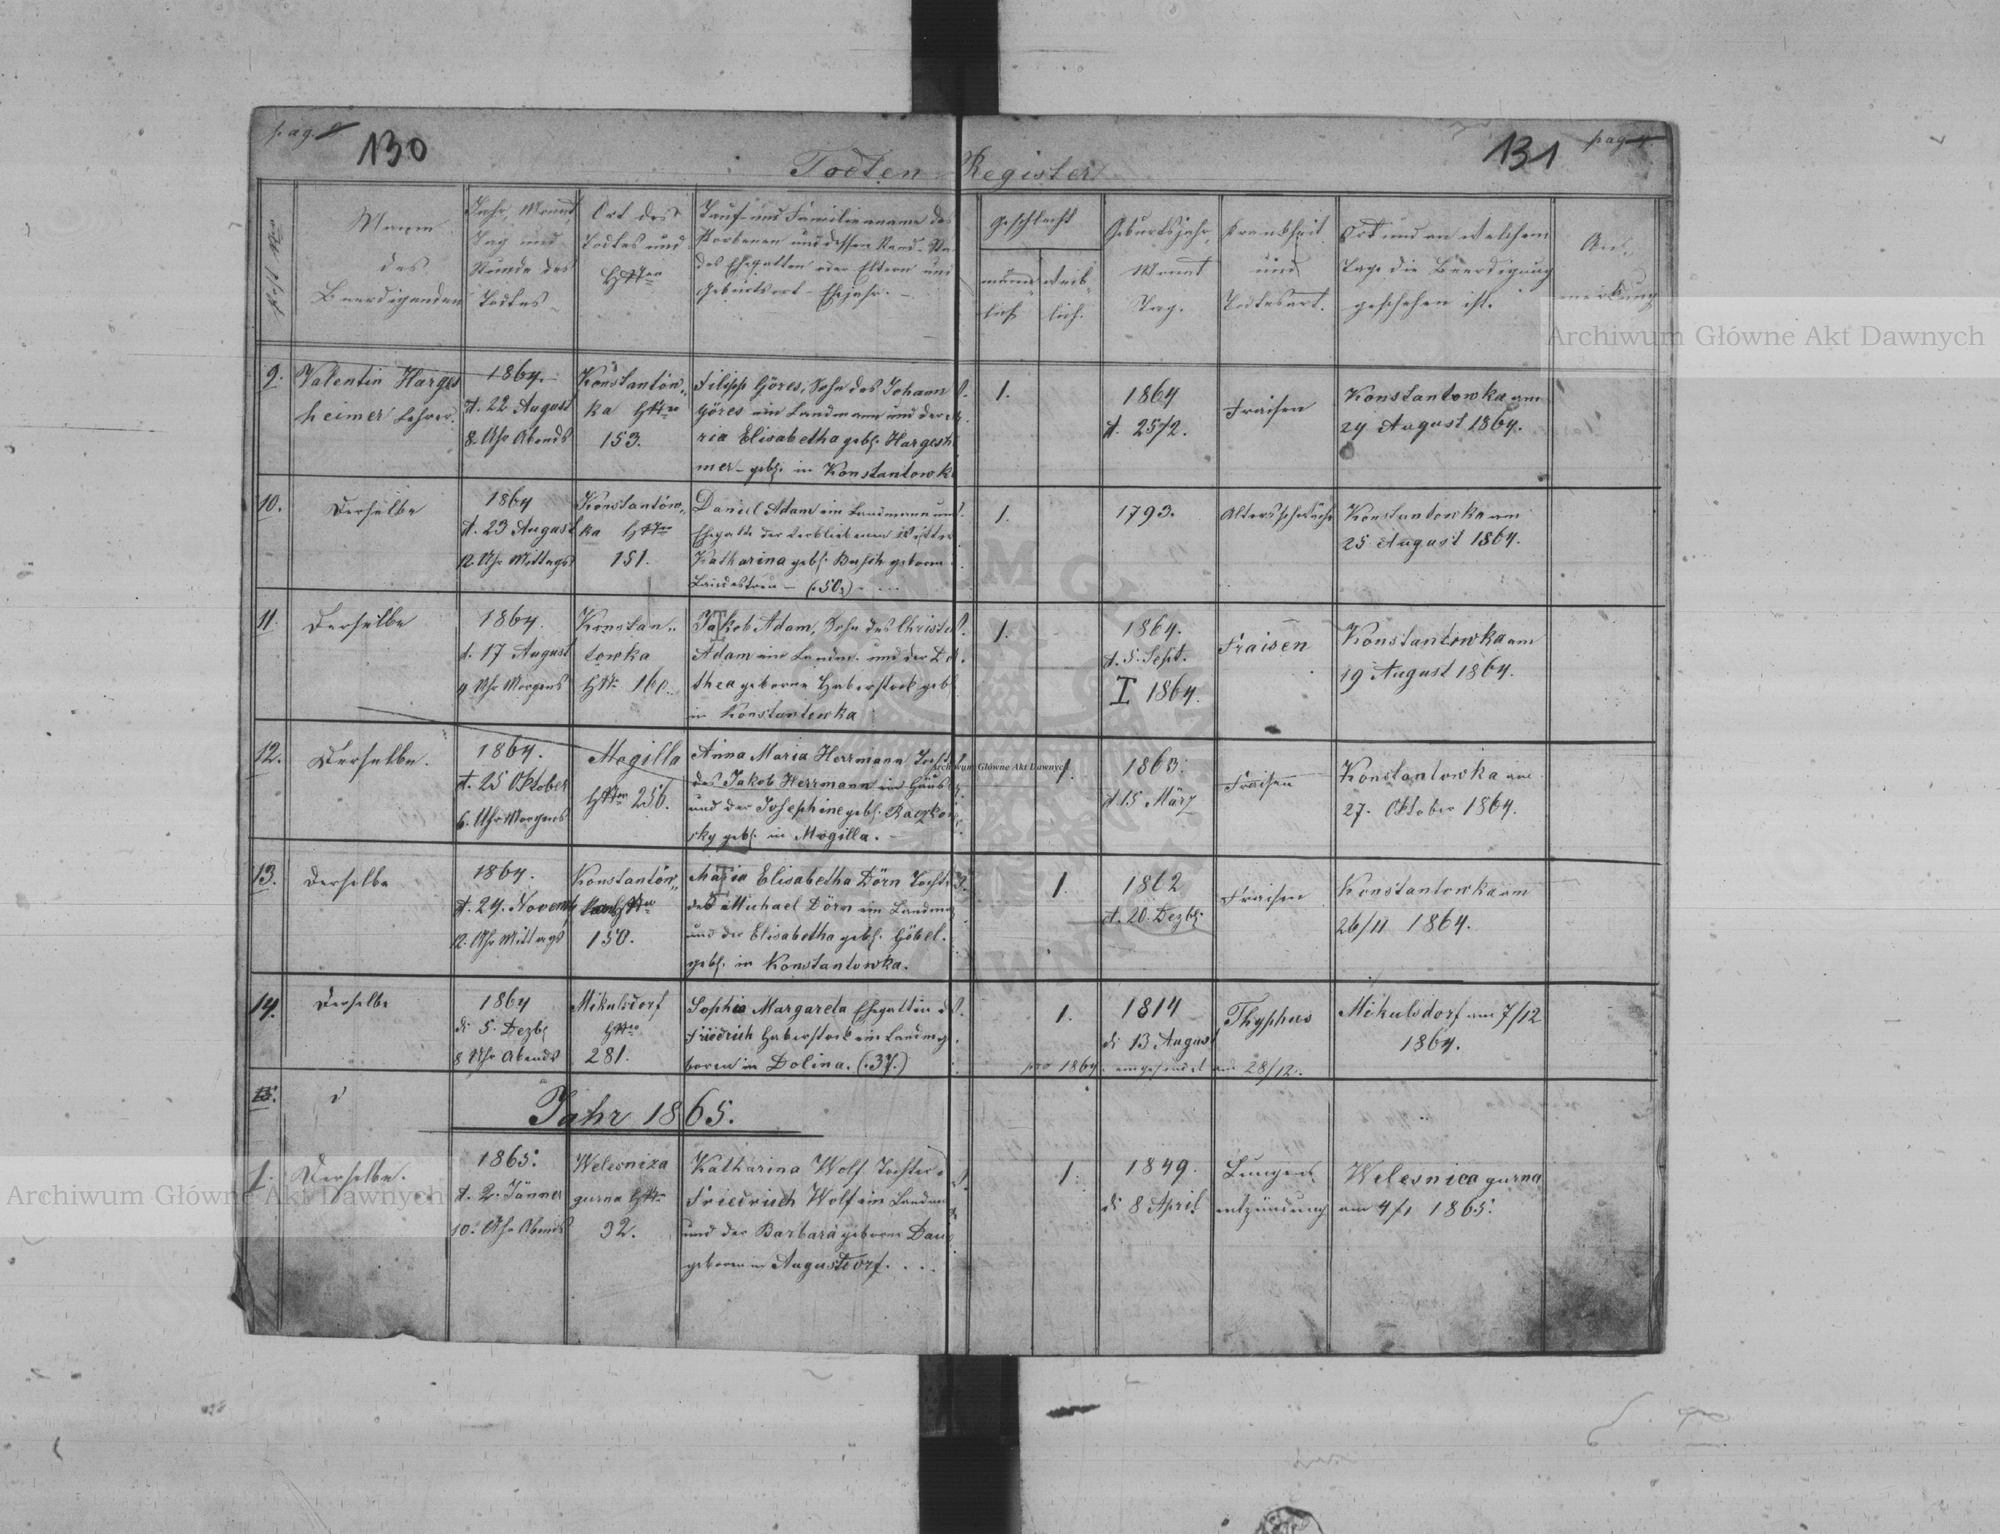 pag.
130
131
pag.
Todten Register
Name
des
Beerdigenden
Jahr, Monat
Tag und
Stunde des
Todes
Ort des
Todes und
Tauf- und Familienname des
des Ehegatten oder Eltern und
Geburtsort - Ehejahr. -
Geschlecht
männ-
lich
weib-
lich.
Geburtsjahr,
Monat
Tag.
Krankheit
und
Todesart.
Ort und an welchem
Tage die Beerdigung
geschehen ist.
An-
merkung
9.
Valentin Harges
heimer Lehrer.
1864.
d. 22 August
8. Uhr Abends
Konstantów„
ka Hsnro
153.
Filipp Göres, Sohn des Johann
Göres ein Landmann und der
ria Elisabetha geb. Hargesh
mer - geb. in Konstantowk
1.
1864
d. 25/2.
Fraisen
Konstantowka am
24 August 1864.
10.
Derselbe
1864
d. 23 August
12 Uhr Mittags
Konstantów„
ka Hsnro
151.
Daniel Adam ein Landmann und
Ehegatte der verbliebenen Wittwe
Katharina geb. Busch geboren
Landestreu - (:50:) - ...
1.
1793.
Altersschwäche
Konstantowka am
25 August 1864.
11.
Derselbe
1864.
d. 17 August
4 Uhr Morgens
Konstan„
towka
160.
Jakob Adam, Sohn des Christ
Adam ein Landm. und der Do
thea geborne Haberstock geb
in Konstantowka
1.
1864.
d. 5. Sept.
I 1864.
Fraisen
Konstantowka am
19 August 1864.
12.
Derselbe.
1864.
d. 25 Oktober
6. Uhr Morgens
Mogilla
Hsnro 256.
Anna Maria Herrmann Tocht
des Jakob Herrmann ein Häus
und der Josephine geb. Raczkow
sky geb. in Mogilla.
1.
1863.
d. 15 März
Fraisen
Konstantowka am
27. Oktober 1864.
13.
Derselbe
1864.
d. 24. Novemb
12. Uhr Mittags
Konstantów„
ka Hsnro
150.
Maria Elisabetha Dörn Tocht
des Michael Dörn ein Landm
und der Elisabetha geb. Göbel.
geb. in Konstantowka.
1.
1862
d. 20. Dezb.
Fraisen
Konstantowka am
26/11 1864.
14.
Derselbe
1864
d. 5. Dezb.
8 Uhr Abends
Mikulsdorf
Hsnro
281.
Sophia Margareta Ehegattin d
Friedrich Haberstock ein Landm g
boren in Dolina. (:37.)
1.
1814
d. 13 August
Thyphus
Mikulsdorf am 7/12
1864.
pro 1864. eingesendet am 28/12.
15.
Jahr 1865.
1.
Derselbe.
1865.
d. 2. Jänner
10. Uhr Abends
Welesniza
gurna Hsnro
32.
Katharina Wolf Tochter
Friedrich Wolf ein Landm
und der Barbara geborne Dau
geboren in Augustdorf. . . .
1.
1849.
d. 8 April
Lungen
entzündung
Welesnica gurna
am 4/1 1865.
Archiwum Główne Akt Dawnych
Archiwum Główne Akt Dawnych
Archiwum Główne Akt Dawnych